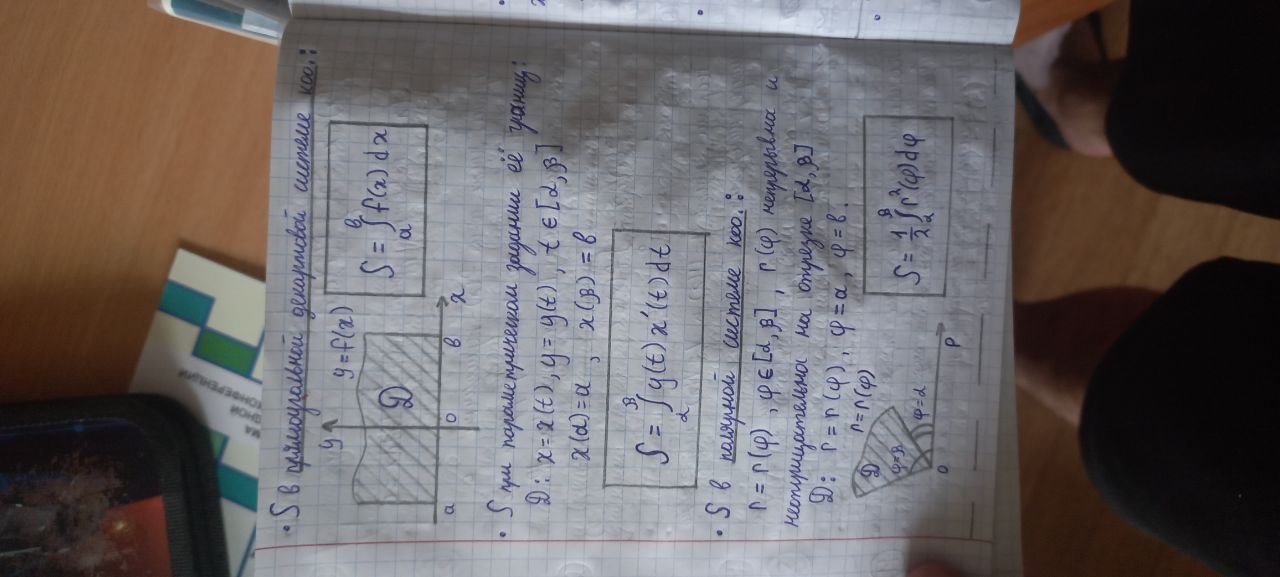 • S в прямоугольной декартовой системе коо.:
y
y = f(x)
D
a
0
в
x
S = ∫ₐᵇ f(x) dx
• S при параметрическом задании её границ:
D: x = x(t), y = y(t), t ∈ [α, β]
x(α) = a, x(β) = в
S = ∫_α^β y(t) x'(t) dt
• S в полярной системе коо.:
r = r(φ), φ ∈ [α, β], r(φ) непрерывна и
неотрицательна на отрезке [α, β]
D: r = r(φ), φ = α, φ = в.
r = r(φ)
D
φ=β
φ = α
0
P
S = 1/2 ∫_α^β r²(φ) dφ
КОНФЕРЕНЦИИ